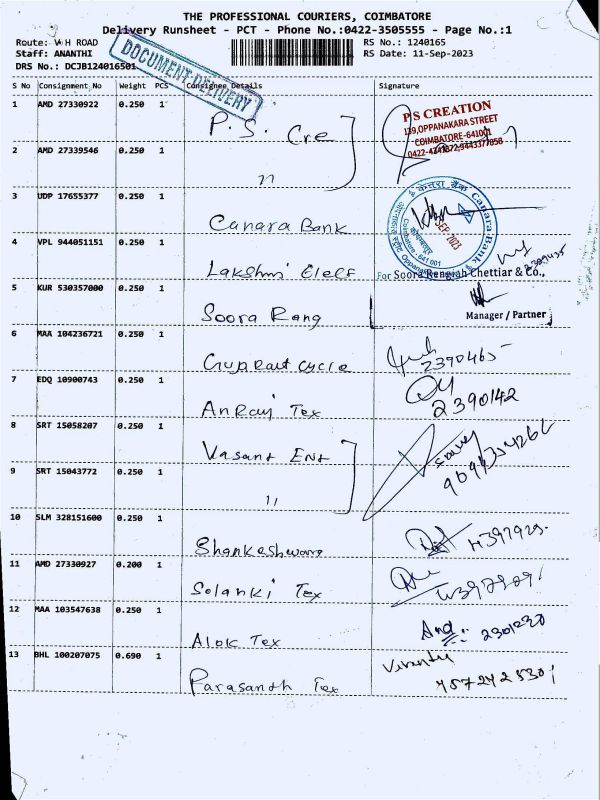 THE PROFESSIONAL COURIERS, COIMBATORE
Delivery Runsheet - PCT - Phone No.:0422-3505555 - Page No.:1
Route: W H ROAD
RS No.: 1240165
Staff: ANANTHI
RS Date: 11-Sep-2023
DRS No.: DCJB124016501
DOCUMENT DELIVERY
S No Consignment_No Weight PCS Consignee Details Signature
1 AMD 27330922 0.250 1
P.S. Cre
P S CREATION
139,OPPANAKARA STREET
COIMBATORE-641001
2 AMD 27339546 0.250 1
"
3 UDP 17655377 0.250 1
Canara Bank
केनरा बैंक Canara Bank
SEP 2023
4 VPL 944051151 0.250 1
Lakshmi Elect
For Soora Rengiah Chettiar & Co.,
5 KUR 530357000 0.250 1
Soora Rang
Manager / Partner
6 MAA 104236721 0.250 1
Gujrat cycle
2390465
7 EDQ 10900743 0.250 1
Anraj Tex
2390142
8 SRT 15058207 0.250 1
Vasant Ent
9 SRT 15043772 0.250 1
"
10 SLM 328151600 0.250 1
Shankeshwara
11 AMD 27330927 0.200 1
Solanki Tex
12 MAA 103547638 0.250 1
Alok Tex
13 BHL 100207075 0.690 1
Parasandh Tex